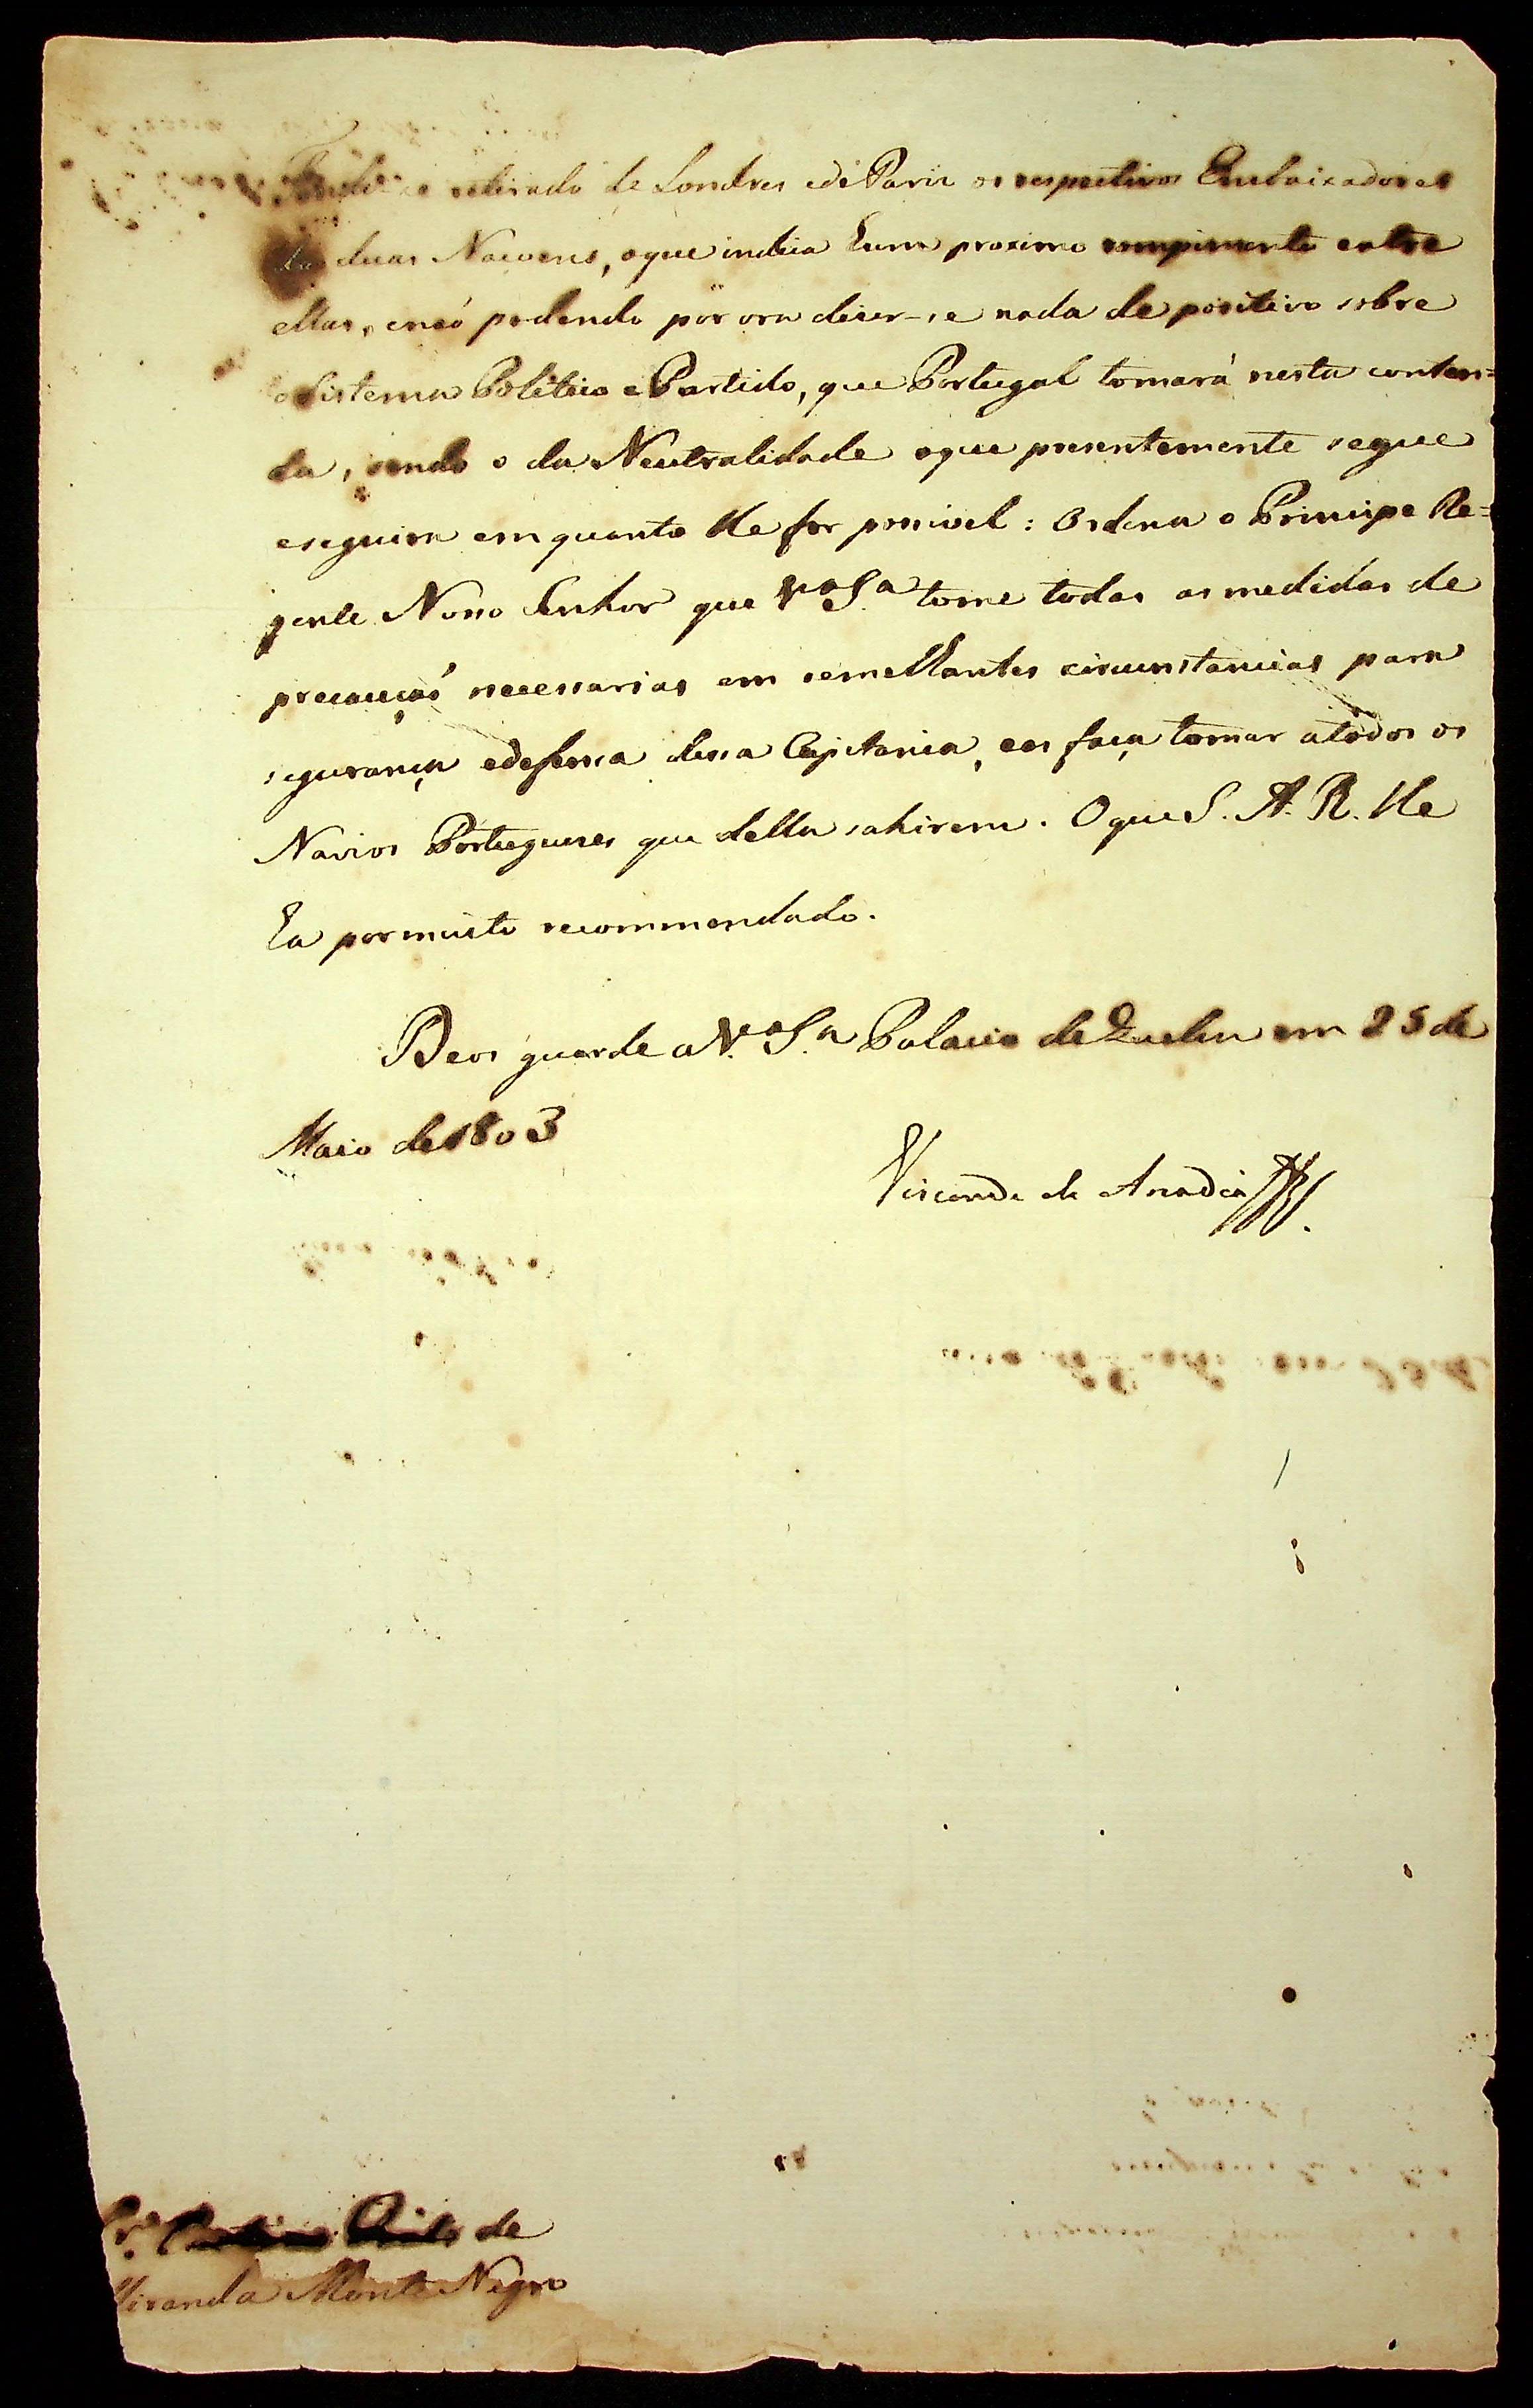 Tendo-se retirado de Londres e de Pariz os respectivos Embaixadores
das duas Nacoens, o que indica hum proximo rompimento entre
ellas, e naó podendo por ora dizer-se nada de positivo sobre
o Sistema Politico e Partido, que Portugal tomará nesta conten=
da, sendo o da Neutralidade o que presentemente segue
e seguirá em quanto lhe for possivel: Ordena o Principe Re=
gente Nosso Senhor que V.ª S.ª tome todas as medidas de
precauçaó necessarias em semelhantes circunstancias para
segurança e defensa dessa Capitania, e as faça tomar a todos os
Navios Portuguezes que della sahirem. O que S. A. R. lhe
ha por muito recommendado.
Deos guarde a V.ª S.ª Palacio de Queluz em 25 de
Maio de 1803
Visconde de Anadia
Sr. de
Miranda Monte Negro